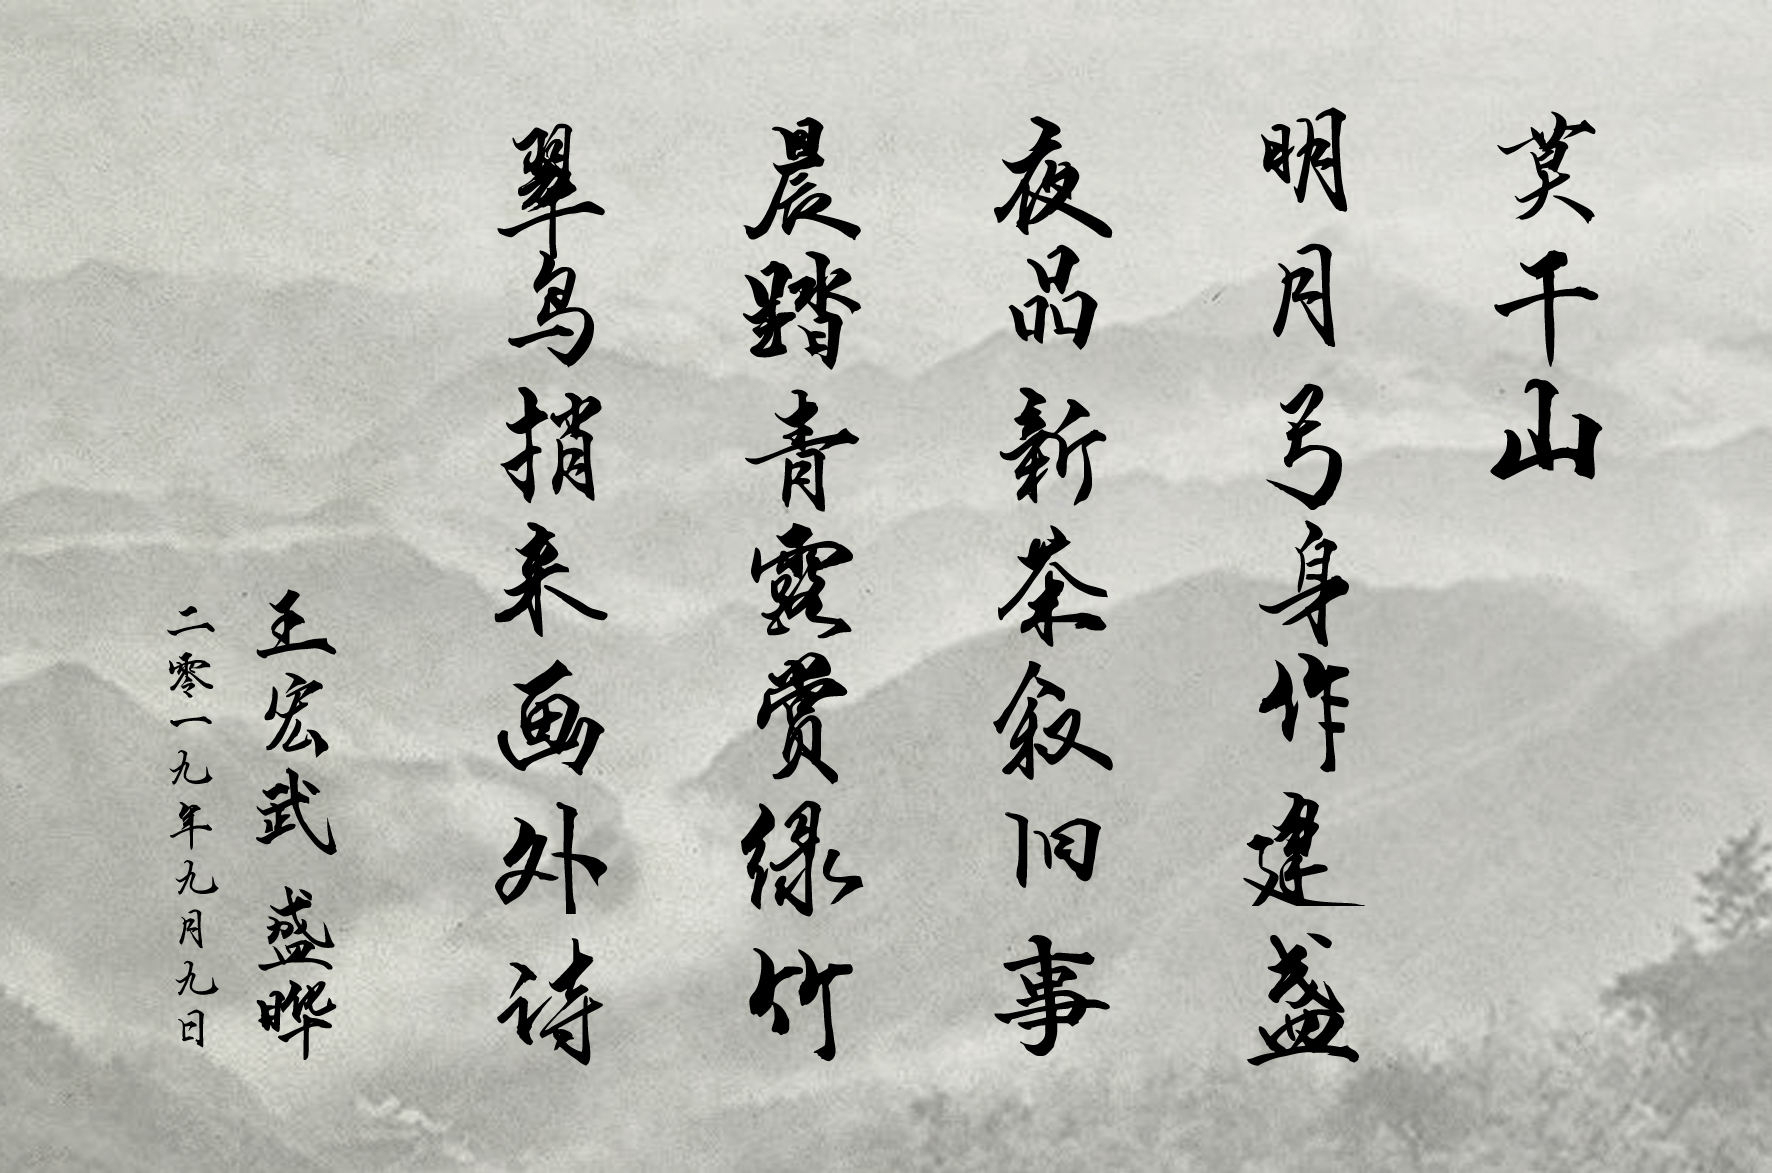 莫干山
明月弓身作建盏
夜品新茶叙旧事
晨踏青露赏绿竹
翠鸟捎来画外诗
王宏武 盛晔
二零一九年九月九日